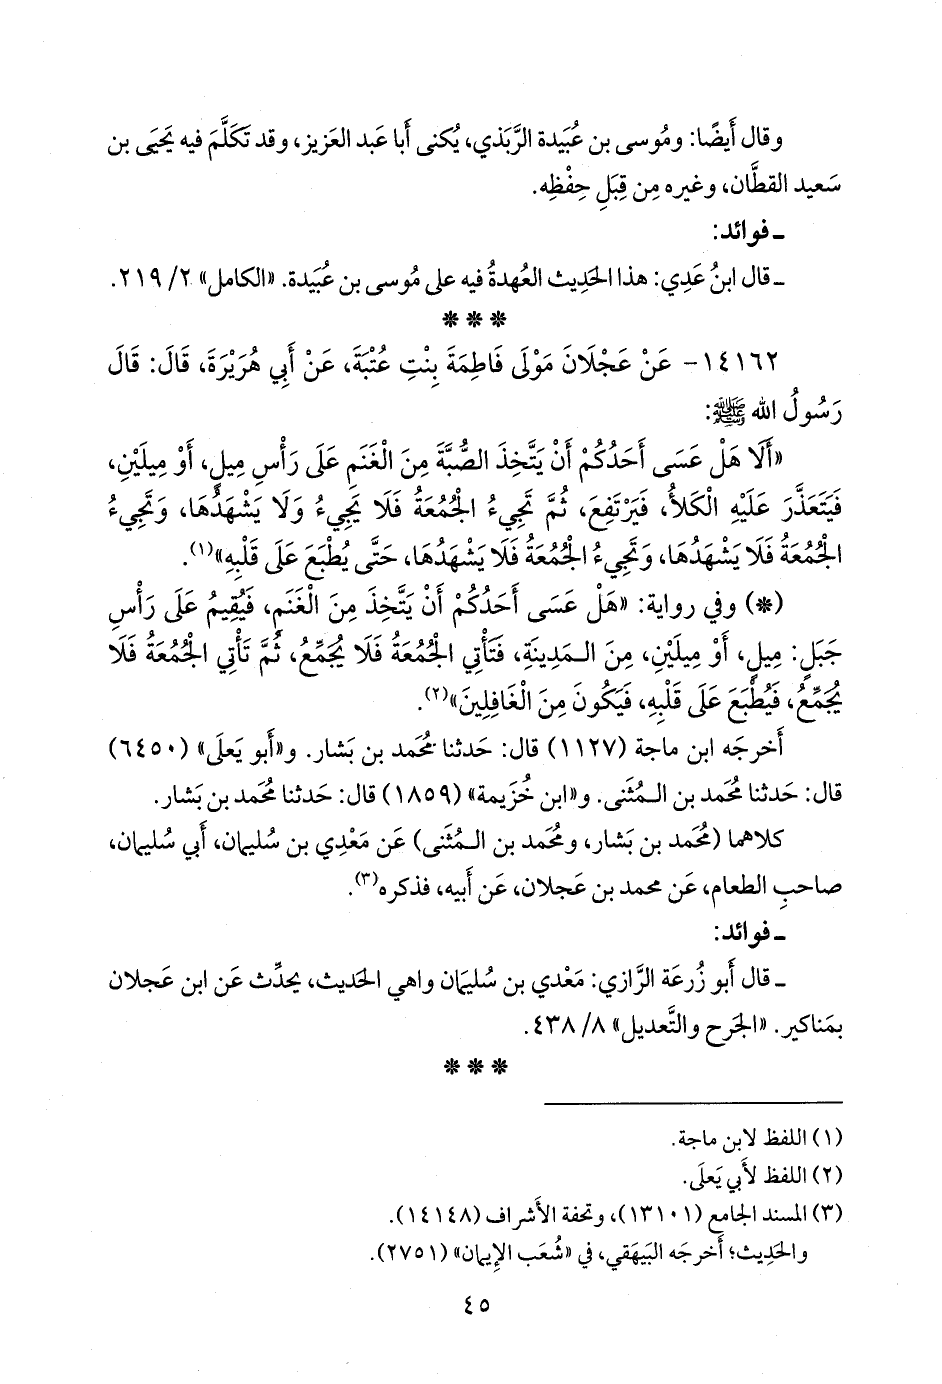 وقال أَيضًا: ومُوسى بن عُبَيدة الرَّبَذي، يُكنى أَبا عَبد العَزيز، وقد تَكَلَّمَ فيه يَحيَى بن
سَعيد القطَّان، وغيره مِن قِبَلِ حِفْظِه.
ـ فوائد:
ـ قال ابنُ عَدِي: هذا الحَديث العُهدةُ فيه على مُوسى بن عُبَيدة. «الكامل» ٢/ ٢١٩.
* * *
١٤١٦٢- عَنْ عَجْلَانَ مَوْلَى فَاطِمَةَ بِنْتِ عُتْبَةَ، عَنْ أَبِي هُرَيْرَةَ، قَالَ: قَالَ
رَسُولُ الله ﷺ:
«أَلَا هَلْ عَسَى أَحَدُكُمْ أَنْ يَتَّخِذَ الصُّبَّةَ مِنَ الْغَنَمِ عَلَى رَأْسِ مِيلٍ، أَوْ مِيلَيْنِ،
فَيَتَعَذَّرَ عَلَيْهِ الْكَلَأُ، فَيَرْتَفِعَ، ثُمَّ تَجِيءُ الْجُمُعَةُ فَلَا يَجِيءُ وَلَا يَشْهَدُهَا، وَتَجِيءُ
الْجُمُعَةُ فَلَا يَشْهَدُهَا، وَتَجِيءُ الْجُمُعَةُ فَلَا يَشْهَدُهَا، حَتَّى يُطْبَعَ عَلَى قَلْبِهِ»(١).
(*) وفي رواية: «هَلْ عَسَى أَحَدُكُمْ أَنْ يَتَّخِذَ مِنَ الْغَنَمِ، فَيُقِيمُ عَلَى رَأْسِ
جَبَلٍ: مِيلٍ، أَوْ مِيلَيْنِ، مِنَ الـمَدِينَةِ، فَتَأْتِي الْجُمُعَةُ فَلَا يُجَمِّعُ، ثُمَّ تَأْتِي الْجُمُعَةُ فَلَا
يُجَمِّعُ، فَيُطْبَعَ عَلَى قَلْبِهِ، فَيَكُونَ مِنَ الْغَافِلِينَ»(٢).
أَخرجَه ابن ماجة (١١٢٧) قال: حَدثنا مُحمد بن بَشار. و«أَبو يَعلَى» (٦٤٥٠)
قال: حَدثنا مُحَمد بن الـمُثنى. و«ابن خُزَيمة» (١٨٥٩) قال: حَدثنا مُحَمد بن بَشار.
كلاهما (مُحَمد بن بَشار، ومُحَمد بن الـمُثنى) عَن مَعْدِي بن سُليمان، أَبي سُليمان،
صاحبِ الطعام، عَن محمد بن عَجلان، عَن أَبيه، فذكره(٣).
ـ فوائد:
ـ قال أَبو زُرعَة الرَّازي: مَعْدي بن سُليمان واهي الحَديث، يحدِّث عَن ابن عَجلان
بمَناكير. «الجَرح والتَّعديل» ٨/ ٤٣٨.
* * *
(١) اللفظ لابن ماجة.
(٢) اللفظ لأَبي يَعلَى.
(٣) المسند الجامع (١٣١٠١)، وتحفة الأَشراف (١٤١٤٨).
والحَدِيث؛ أَخرجَه البَيهَقي، في «شُعَب الإِيمان» (٢٧٥١).
٤٥